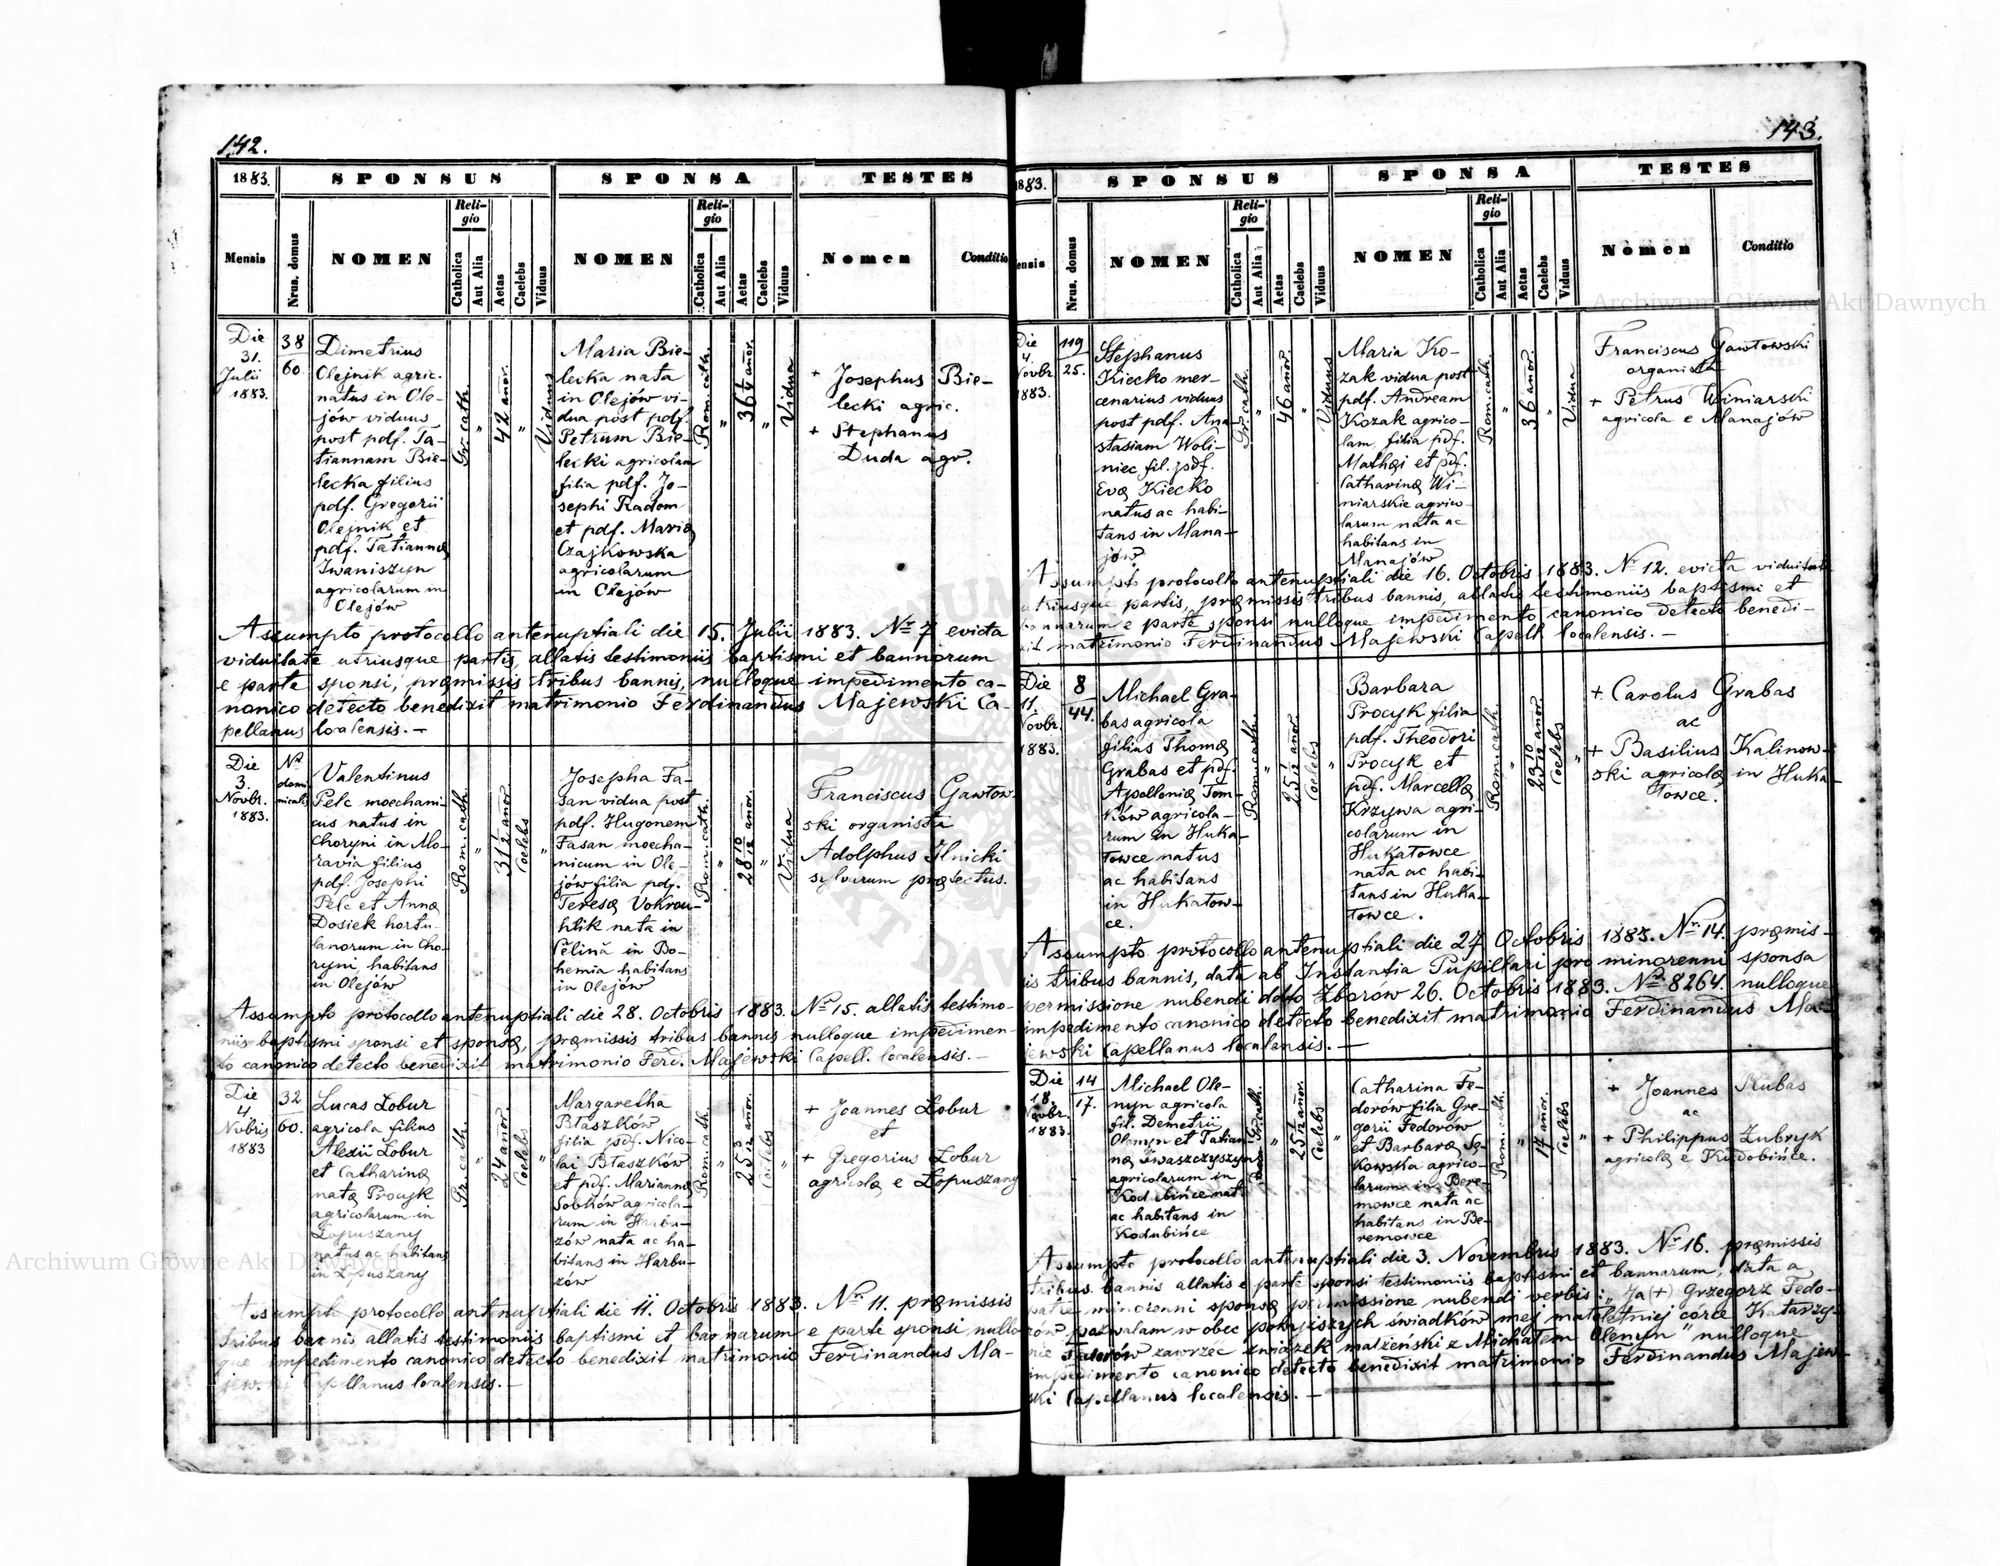 142.
1883.
SPONSUS
SPONSA
TESTES
Mensis
Nrus. domus
NOMEN
Religio
Catholica
Aut Alia
Aetas
Caelebs
Viduus
NOMEN
Religio
Catholica
Aut Alia
Aetas
Caelebs
Viduus
Nomen
Conditio
Die
31.
Julii
1883.
38
60.
Dimetrius
Olejnik agric.
natus in Ole-
jów viduus
post pdf. Ta-
tiannam Bie-
lecka filius
pdf. Gregorii
Olejnik et
pdf. Tatiannæ
Iwaniszyn
agricolarum in
Olejów
Gr. cath.
"
42 anor.
"
Viduus
Maria Bie-
lecka nata
in Olejów vi-
dua post pdf.
Petrum Bie-
lecki agricolam
filia pdf. Jo-
sephi Radom
et pdf. Mariæ
Czajkowska
agricolarum
in Olejów
Rom. cath.
"
"
Vidua
+ Josephus Bie-
lecki agric.
+ Stephanus
Duda agr.
Assumpto protocollo antenuptiali die 15. Julii 1883. Nr 7 evicta
viduitate utriusque partis, allatis testimoniis baptismi et bannorum
e parte sponsi, præmissis tribus bannis, nulloque impedimento ca-
nonico detecto benedixit matrimonio Ferdinandus Majewski Ca-
pellanus localensis. —
Die
3.
Novbr.
1883.
Nr
domi
nicali
Valentinus
Pelc moechani-
cus natus in
Choryni in Mo-
ravia filius
pdf. Josephi
Pelc et Annæ
Dosiek hortu-
lanorum in Cho-
ryni, habitans
in Olejów
Rom. cath.
"
31 1/2 anor.
Coelebs
"
Josepha Fa-
san vidua post
pdf. Hugonem
Fasan moecha-
nicum in Ole-
jów filia pdf.
Teresæ Vokrou-
hlik nata in
Čelina in Bo-
hemia habitans
in Olejów
Rom. cath.
"
28 10/12 anor.
"
Vidua
Franciscus Gawłow-
ski organista
Adolphus Ilnicki
sylvarum præfectus.
Assumpto protocollo antenuptiali die 28. Octobris 1883. Nr 15. allatis testimo-
niis baptismi sponsi et sponsæ, præmissis tribus bannis nulloque impedimen-
to canonico detecto benedixit matrimonio Ferd. Majewski Capell. localensis. —
Die
4.
Novbris
1883
32
60.
Lucas Łobur
agricola filius
Alexii Łobur
et Catharinæ
natæ Procyk
agricolarum in
Łopuszany
natus ac habitans
in Łopuszany
Gr. cath.
"
24 anor.
Coelebs
"
Margaretha
Błaszków
filia pdf. Nico-
lai Błaszków
et pdf. Mariannæ
Sobków agricola-
rum in Harbu-
zów nata ac ha-
bitans in Harbu-
zów
Rom. cath.
"
25 3/12 anor.
Coelebs
"
+ Joannes Łobur
et
+ Gregorius Łobur
agricolæ e Łopuszany
Assumpto protocollo antenuptiali die 11. Octobris 1883. Nr 11. præmissis
tribus bannis, allatis testimoniis baptismi et bannarum e parte sponsi nullo-
que impedimento canonico detecto benedixit matrimonio Ferdinandus Ma-
jewski Capellanus localensis. —
143.
1883.
SPONSUS
SPONSA
TESTES
ensis
Nrus. domus
NOMEN
Religio
Catholica
Aut Alia
Aetas
Caelebs
Viduus
NOMEN
Religio
Catholica
Aut Alia
Aetas
Caelebs
Viduus
Nomen
Conditio
Die
4.
Novbr.
1883.
119
25.
Stephanus
Kiecko mer-
cenarius viduus
post pdf. Ana-
stasiam Woli-
niec fil. pdf.
Evæ Kiecko
natus ac habi-
tans in Mana-
jów
Gr. cath.
"
46 anor.
"
Viduus
Maria Ko-
zak vidua post
pdf. Andream
Kozak agrico-
lam, filia pdf.
Mathæi et pdf.
Catharinæ Wi-
niarskie agrico-
larum nata ac
habitans in
Manajów
Rom. cath.
"
36 anor.
"
Vidua
Franciscus Gawłowski
organista
+ Petrus Winiarski
agricola e Manajów
Assumpto protocollo antenuptiali die 16. Octobris 1883. Nr 12. evicta viduitate
utriusque partis, præmissis tribus bannis, allatis testimoniis baptismi et
bannarum e parte sponsi nulloque impedimento canonico detecto benedi-
xit matrimonio Ferdinandus Majewski Capell. localensis. —
Die
11.
Novbr.
1883.
8
44.
Michael Gra-
bas agricola
filius Thomæ
Grabas et pdf.
Apolloniæ Tom-
ków agricola-
rum in Huka-
łowce natus
ac habitans
in Hukałow-
ce.
Rom. cath.
"
25 1/12 anor.
Coelebs
"
Barbara
Procyk filia
pdf. Theodori
Procyk et
pdf. Marcellæ
Krzywa agri-
colarum in
Hukałowce
nata ac habi-
tans in Huka-
łowce.
Rom. cath.
"
23 10/12 anor.
Coelebs
"
+ Carolus Grabas
ac
+ Basilius Kalinow-
ski agricolæ in Huka-
łowce.
Assumpto protocollo antenuptiali die 27 Octobris 1883. Nr 14. præmis-
sis tribus bannis, data ab Instantia Pupillari pro minorenni sponsa
permissione nubendi ddto Zborów 26. Octobris 1883. Nr 8264. nulloque
impedimento canonico detecto benedixit matrimonio Ferdinandus Ma-
jewski Capellanus localensis. —
Die
18.
Novbr.
1883.
14
17.
Michael Ole-
nyn agricola
fil. Demetrii
Olenyn et Tatian-
næ Iwaszczyszyn
agricolarum in
Kodubińce nat.
ac habitans in
Kodubińce
Gr. cath.
"
Coelebs
"
Catharina Fe-
dorów filia Gre-
gorii Fedorów
et Barbaræ Sę-
kowska agrico-
larum in Bere-
mowce nata ac
habitans in Be-
remowce
Rom. cath.
"
17 anor.
Coelebs
"
+ Joannes Rubas
ac
+ Philippus Zubryk
agricolæ e Kudobińce.
Assumpto protocollo antenuptiali die 3. Novembris 1883. Nr 16. præmissis
tribus bannis allatis e parte sponsi testimoniis baptismi et bannarum, data a
patre minorenni sponsæ permissione nubendi verbis: „Ja (+) Grzegorz Fedo-
rów pozwalam w obec powyższych świadków mej małoletniej córce Katarzy-
nie Fedorów zawrzeć związek małżeński z Michałem Olenyn" nulloque
impedimento canonico detecto benedixit matrimonio Ferdinandus Majew-
ski Capellanus localensis. —
Archiwum Główne Akt Dawnych
Archiwum Główne Akt Dawnych